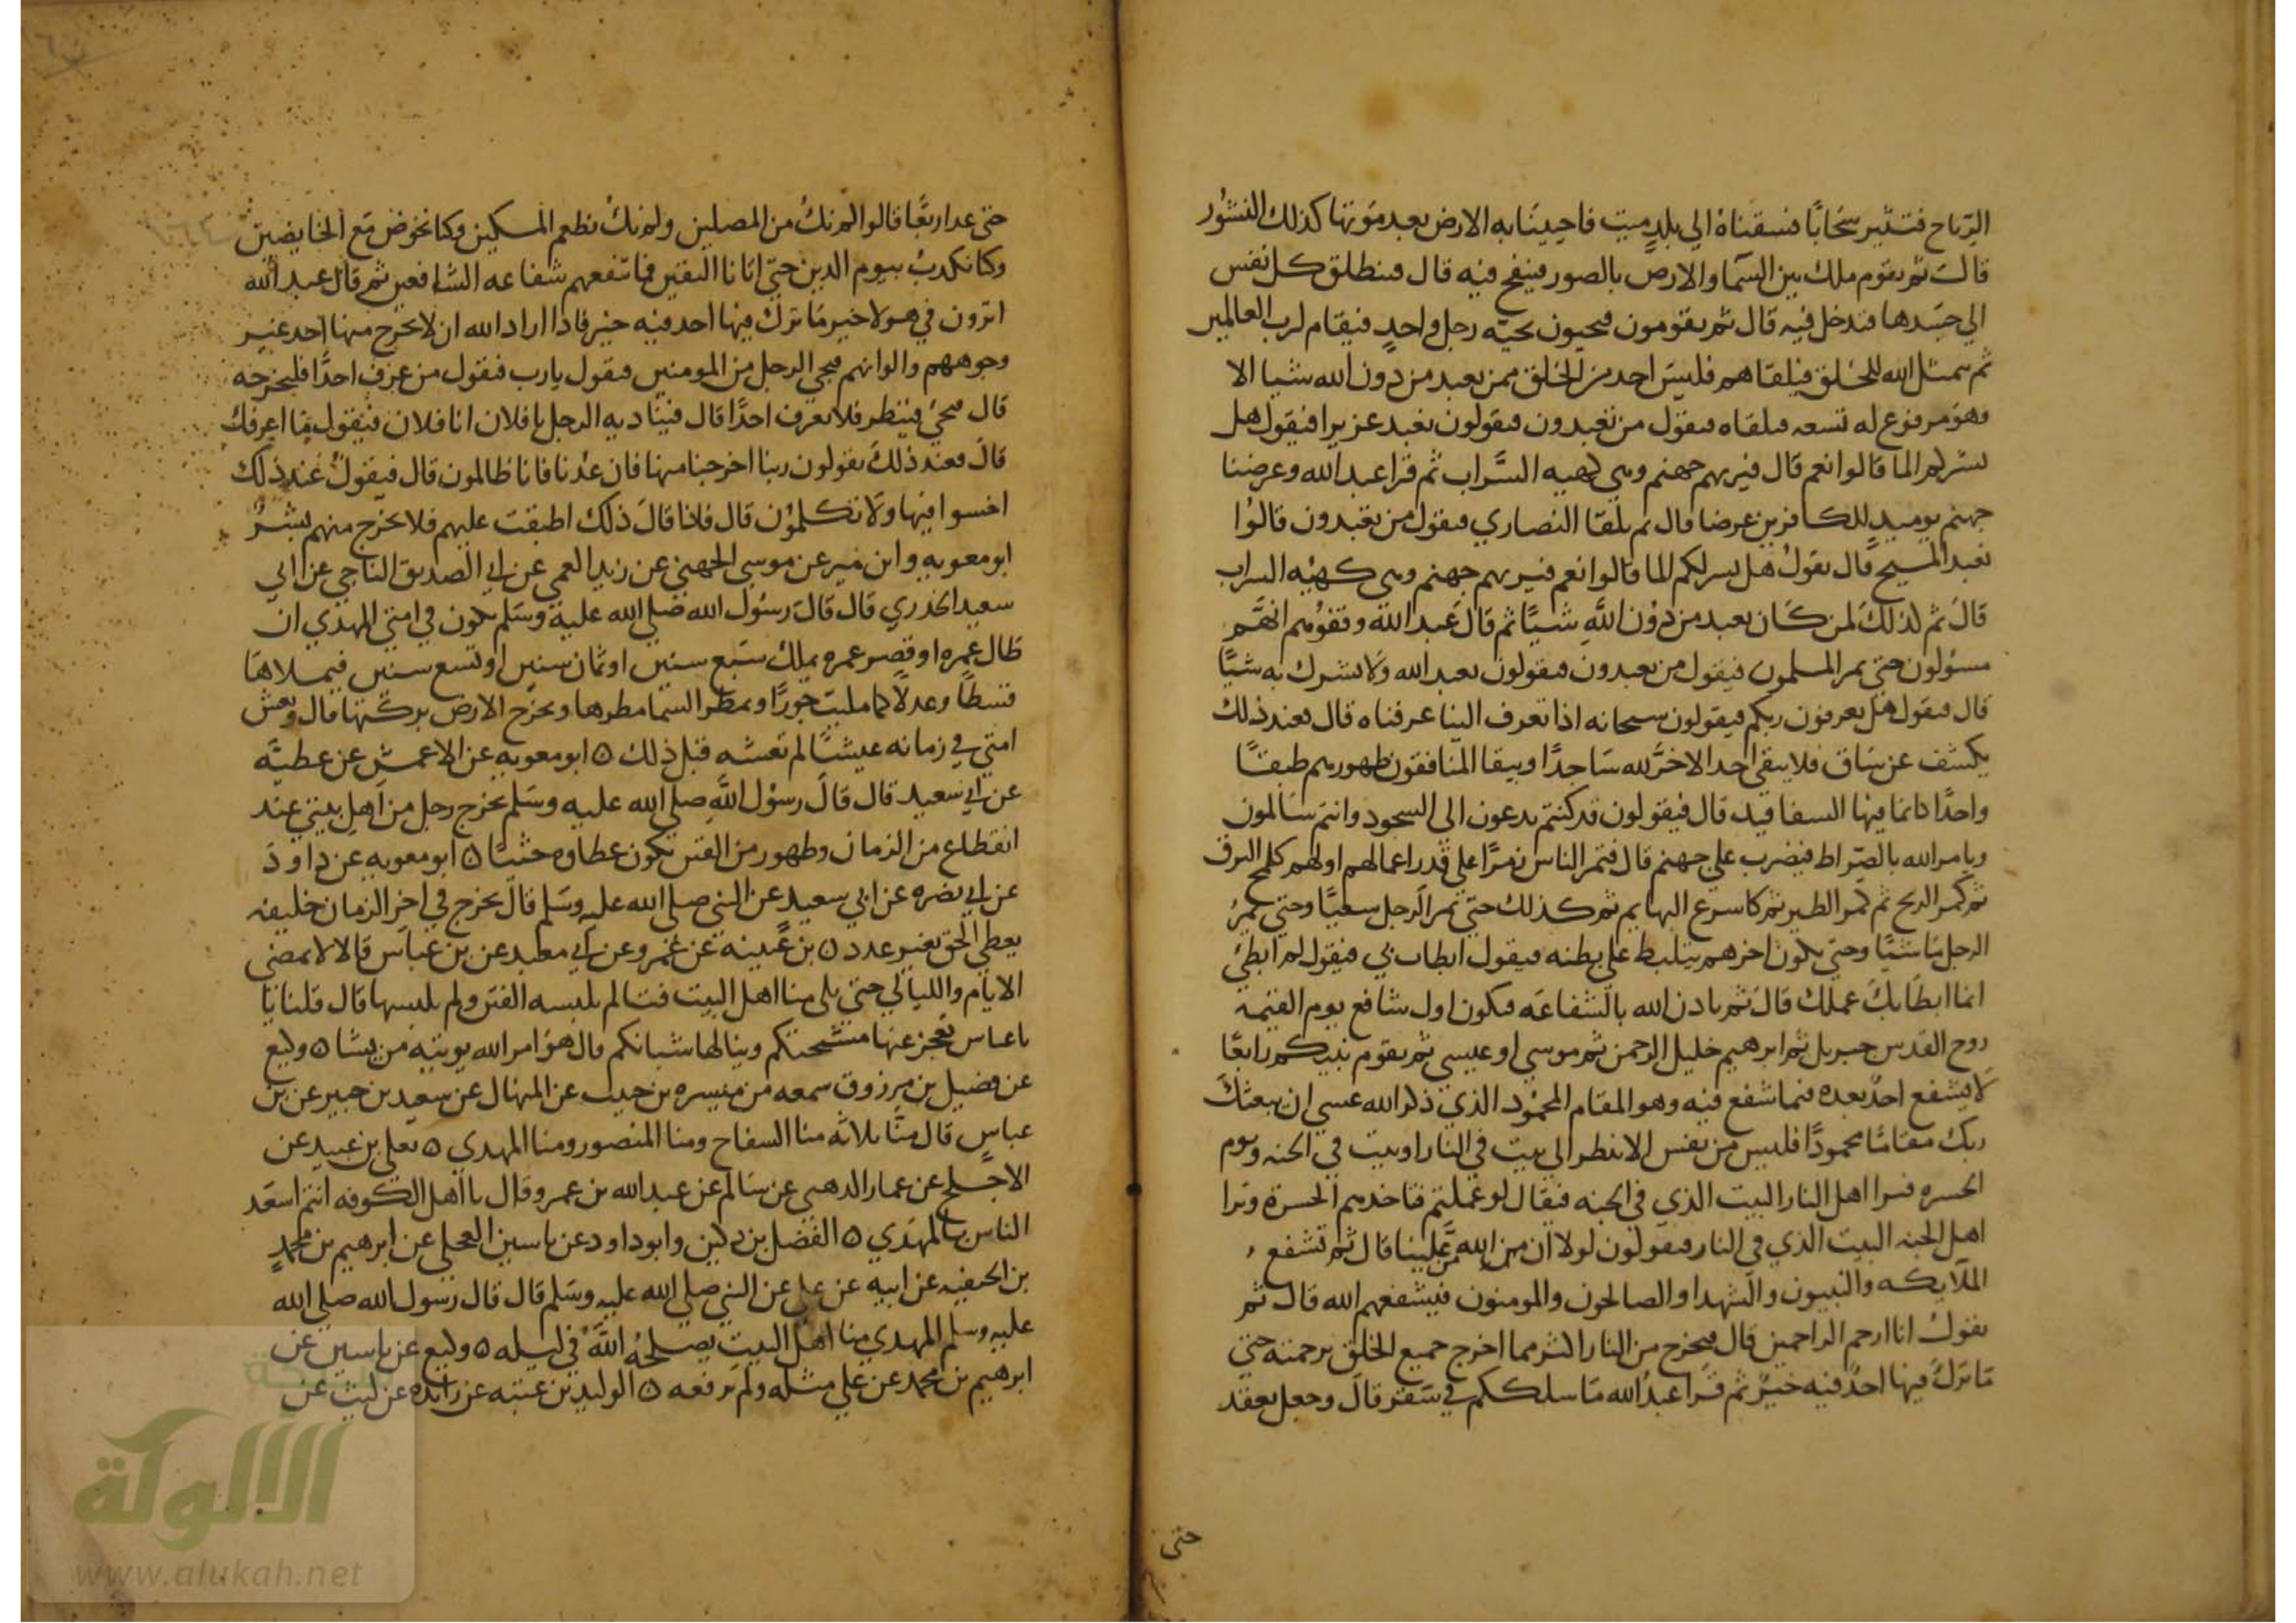 الرياح فتثير سحابا فسقناه الى بلد ميت فاحيينا به الارض بعد موتها كذلك النشور
قال ثم يقوم ملك بين السما والارض بالصور فينفخ فيه قال فينطلق كل نفس
الي جسدها فتدخل فيه قال ثم يقومون فيحيون تحيه رجل واحد فيقام لرب العالمين
ثم يتمثل الله للخلق فيلقاهم فليس احد من الخلق ممن يعبد من دون الله شيا الا
وهو مرفوع له تتبعه فيلقاه فيقول من تعبدون فيقولون نعبد عزيرا فيقول هل
يسركم الما قالوا نعم قال فيريهم جهنم وهي كهيه السراب ثم قرا عبد الله وعرضنا
جهنم يوميذ للكافرين عرضا قال ثم يلقا النصاري فيقول من تعبدون قالوا
نعبد المسيح قال يقول هل يسركم الما قالوا نعم فيريهم جهنم وهي كهيه السراب
قال ثم كذلك لمن كان يعبد من دون الله شيا ثم قال عبد الله وقفوهم انهم
مسؤلون حتى يمر المسلمون فيقول من تعبدون فيقولون نعبد الله ولا نشرك به شيا
قال فيقول هل تعرفون ربكم فيقولون سبحانه اذا تعرف الينا عرفناه قال فعند ذلك
يكشف عن ساق فلا يبقى احد الا خر لله ساجدا ويبقا المنافقون ظهورهم طبقا
واحدا كانما فيها السفافيد قال فيقولون قد كنتم تدعون الى السجود وانتم سالمون
ويامر الله بالصراط فيضرب على جهنم قال فتمر الناس زمرا على قدر اعمالهم اولهم كلمح البرق
ثم كمر الريح ثم كمر الطير ثم كاسرع البهايم ثم كذلك حتى يمر الرجل سعيا وحتى يمر
الرجل ماشيا وحتى يكون اخرهم يتلبط على بطنه فيقول ابطات بي فيقول لم ابطئ
انما ابطا بك عملك قال ثم ياذن الله بالشفاعه فيكون اول شافع يوم القيمه
روح القدس جبريل ثم ابرهيم خليل الرحمن ثم موسى او عيسى ثم يقوم نبيكم رابعا
لا يشفع احد بعده فيما شفع فيه وهو المقام المحمود الذي ذكر الله عسى ان يبعثك
ربك مقاما محمودا فليس من نفس الا ينظر الى بيت في النار او بيت في الجنه ويوم
الحسره فيرا اهل النار البيت الذي في الجنه فيقال لو عملتم فتاخذهم الحسرة ويرا
اهل الجنه البيت الذي في النار فيقولون لولا ان من الله علينا قال ثم تشفع
الملايكه والنبيون والشهدا والصالحون والمومنون فيشفعهم الله قال ثم
يقول انا ارحم الراحمين قال فيخرج من النار اكثر مما اخرج جميع الخلق برحمته حتى
ما ترك فيها احد فيه خير ثم قرا عبد الله ما سلككم في سقر قال وجعل يعقد
حتى
حتى عد اربعا قالوا لم نك من المصلين ولم نك نطعم المسكين وكنا نخوض مع الخايضين
وكنا نكذب بيوم الدين حتى اتانا اليقين فما تنفعهم شفاعه الشافعين ثم قال عبد الله
اترون في هولا خير ما ترك فيها احد فيه خير فاذا اراد الله ان لا يخرج منها احد غير
وجوههم والوانهم فيجي الرجل من المومنين فيقول يارب فيقول من عرف احدا فليخرجه
قال فيجي فينظر فلا يعرف احدا قال فيناديه الرجل يا فلان انا فلان فيقول ما اعرفك
قال فعند ذلك يقولون ربنا اخرجنا منها فان عدنا فانا ظالمون قال فيقول عند ذلك
اخسوا فيها ولا تكلمون قال فاذا قال ذلك اطبقت عليهم فلا يخرج منهم بشر
ابو معويه وابن نمير عن موسى الجهني عن زيد العمي عن ابي الصديق الناجي عن ابي
سعيد الخدري قال قال رسول الله صلى الله عليه وسلم يكون في امتي المهدي ان
طال عمره او قصر عمره يملك سبع سنين او ثمان سنين او تسع سنين فيملاها
قسطا وعدلا كما مليت جورا وتمطر السما مطرها وتخرج الارض بركتها قال وتعيش
امتي في زمانه عيشا لم تعشه قبل ذلك ٥ ابو معويه عن الاعمش عن عطيه
عن ابي سعيد قال قال رسول الله صلى الله عليه وسلم يخرج رجل من اهل بيتي عند
انقطاع من الزمان وظهور من الفتن يكون عطاوه حثيا ٥ ابو معويه عن داود
عن ابي نضره عن ابي سعيد عن النبي صلى الله عليه وسلم قال يخرج في اخر الزمان خليفه
يعطي الحق بغير عدد ٥ بن عيينه عن عمرو عن ابي معبد عن بن عباس قال لا تمضي
الايام والليالي حتى يلي منا اهل البيت فتا لم يلبسه الفتن ولم يلبسها قال قلنا يا
با عباس تعجز عنها مشيختكم وينالها شبانكم قال هو امر الله يوتيه من يشا ٥ وكيع
عن فضيل بن مرزوق سمعه من ميسره بن حبيب عن المنهال عن سعيد بن جبير عن بن
عباس قال منا ثلاثه منا السفاح ومنا المنصور ومنا المهدي ٥ يعلى بن عبيد عن
الاجلح عن عمار الدهني عن سالم عن عبد الله بن عمرو قال يا اهل الكوفه انتم اسعد
الناس بالمهدي ٥ الفضل بن دكين وابو داود عن ياسين العجلي عن ابرهيم بن محمد
بن الحنفيه عن ابيه عن علي عن النبي صلى الله عليه وسلم قال قال رسول الله صلى الله
عليه وسلم المهدي منا اهل البيت يصلحه الله في ليله ٥ وكيع عن ياسين عن
ابرهيم بن محمد عن علي مثله ولم يرفعه ٥ الوليد بن عتبه عن زايده عن ليث عن
الألوكة
www.alukah.net